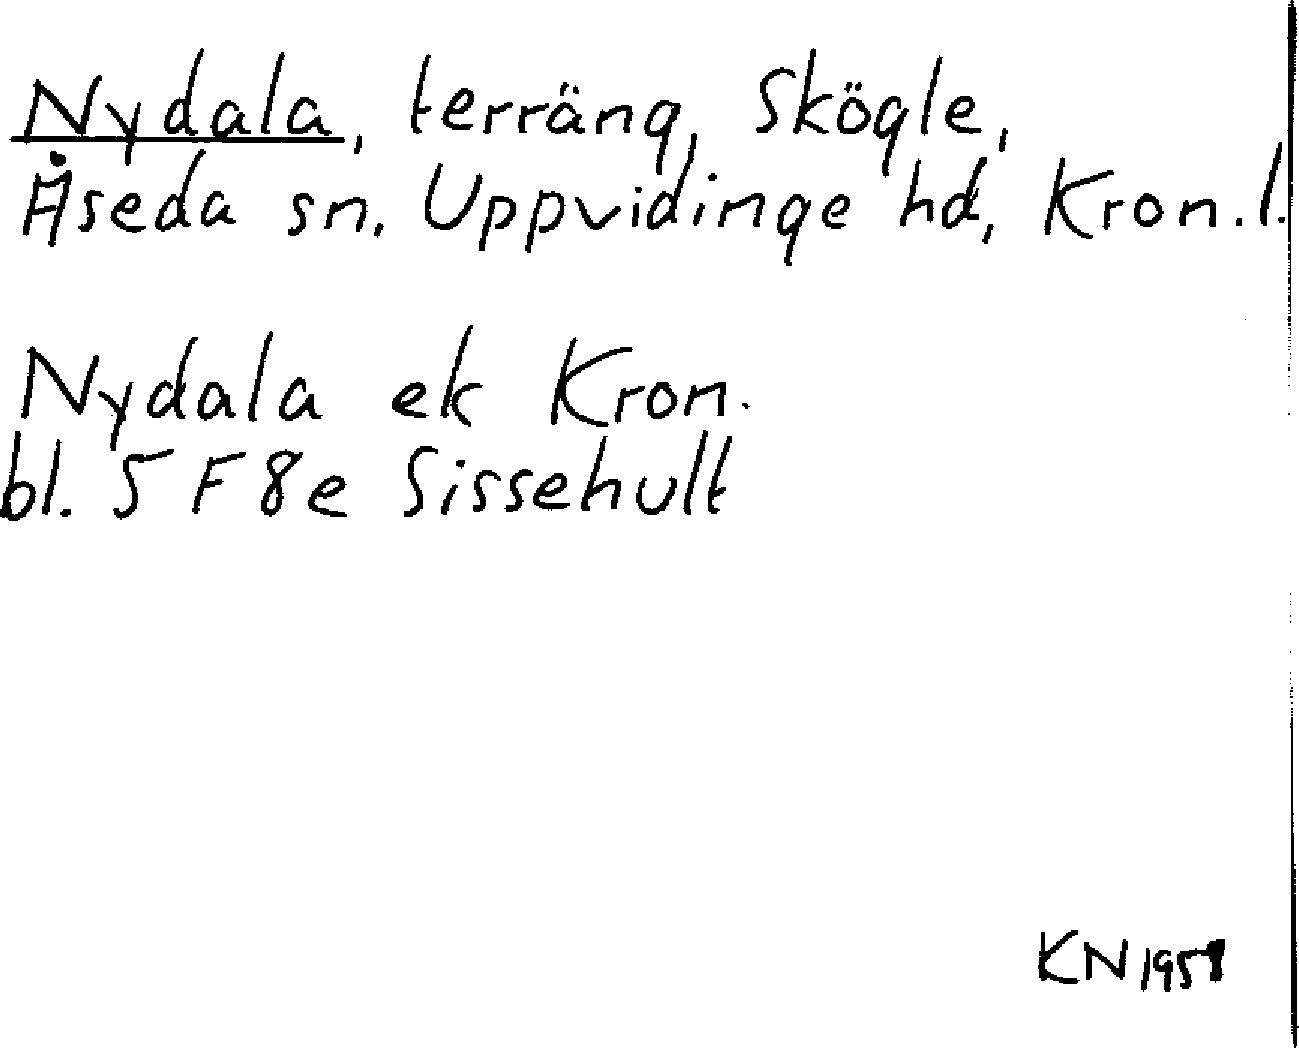 Nydala, terräng, Skögle,
Åseda sn. Uppvidinge hd, Kron.l.
Nydala ek Kron.
bl. 5 F 8e Sissehult
KN